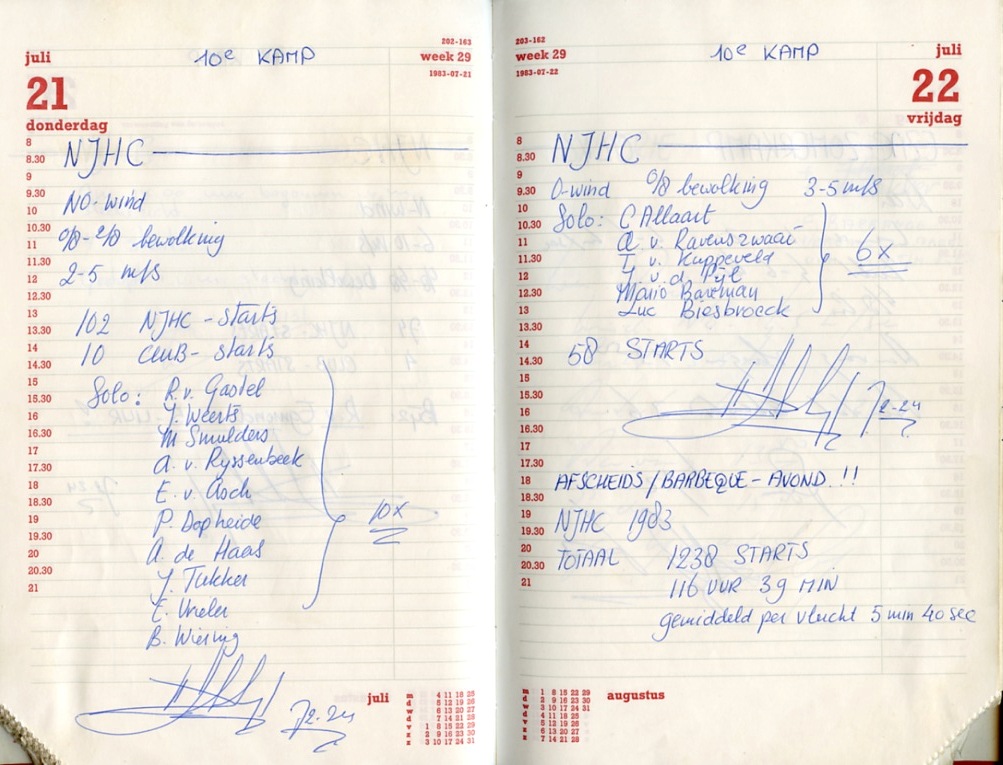 juli
10e KAMP
202-163
week 29
1983-07-21
21
donderdag
8
8.30
9
9.30
10
10.30
11
11.30
12
12.30
13
13.30
14
14.30
15
15.30
16
16.30
17
17.30
18
18.30
19
19.30
20
20.30
21
NJHC
NO-wind
0/8-2/8 bewolking
2-5 m/s
102 NJHC-starts
10 CLUB-starts
Solo: R.v. Gastel
J. Weerts
M Smulders
A. v. Ryssenbeek
E. v. Asch
P. Dopheide
A. de Haas
J. Tukker
E.
B. Wiering
10x
juli
m 4 11 18 25
d 5 12 19 26
w 6 13 20 27
d 7 14 21 28
v 1 8 15 22 29
z 2 9 16 23 30
z 3 10 17 24 31
203-162
week 29
1983-07-22
10e KAMP
juli
22
vrijdag
8
8.30
9
9.30
10
10.30
11
11.30
12
12.30
13
13.30
14
14.30
15
15.30
16
16.30
17
17.30
18
18.30
19
19.30
20
20.30
21
NJHC
O-wind 0/8 bewolking 3-5 m/s
Solo: C Allaart
A. v. Ravenszwaai
T. v. Kuppeveld
J. v.d. Pijl
Mario Bareman
Luc Biesbroeck
6x
58 STARTS
AFSCHEIDS/BARBEQUE-AVOND !!
NJHC 1983
TOTAAL 1238 STARTS
116 UUR 39 MIN
gemiddeld per vlucht 5 min 40 sec
augustus
m 1 8 15 22 29
d 2 9 16 23 30
w 3 10 17 24 31
d 4 11 18 25
v 5 12 19 26
z 6 13 20 27
z 7 14 21 28